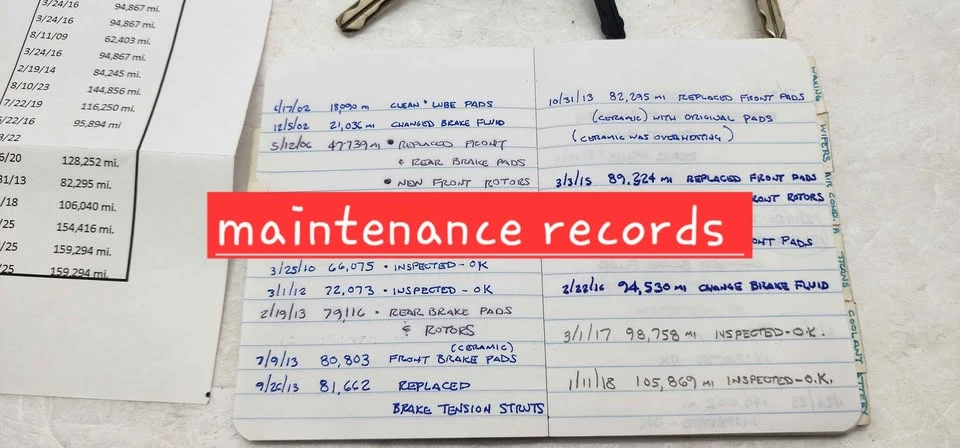 3/24/16 94,867 mi.
3/24/16 94,867 mi.
8/11/09 62,403 mi.
3/24/16 94,867 mi.
2/19/14 84,245 mi.
8/10/23 144,856 mi.
7/22/19 116,250 mi.
22/16 95,894 mi.
3/22
6/20 128,252 mi.
31/13 82,295 mi.
/18 106,040 mi.
/25 154,416 mi.
/25 159,294 mi.
/25 159,294 mi.
18,090 MI CLEAN & LUBE PADS
12/5/02 21,036 MI CHANGED BRAKE FLUID
5/12/06 47739 MI • REPLACED FRONT
& REAR BRAKE PADS
• NEW FRONT ROTORS
maintenance records
3/25/10 66,075 • INSPECTED - OK
3/1/12 72,073 • INSPECTED - OK
2/19/13 79,116 • REAR BRAKE PADS
& ROTORS
(CERAMIC)
7/9/13 80,803 FRONT BRAKE PADS
9/26/13 81,662 REPLACED
BRAKE TENSION STRUTS
10/31/13 82,295 MI REPLACED FRONT PADS
(CERAMIC) WITH ORIGINAL PADS
(CERAMIC WAS OVERHEATING)
3/3/15 89,224 MI REPLACED FRONT PADS
FRONT ROTORS
FRONT PADS
2/22/16 94,530 MI CHANGE BRAKE FLUID
3/1/17 98,758 MI INSPECTED-O.K.
1/11/18 105,869 MI INSPECTED-O.K.
WAXING
WIPERS
AIR COND.
TRANS
COOLANT
BATTERY